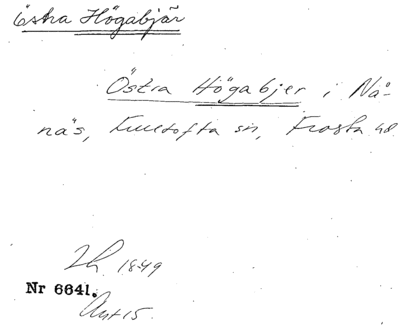 östra Högabjär
Östra Högabjer i Nå-
näs, Fulltofta sn, Frosta hd
Lh. 1849
Nr 6641.
Avt 15.